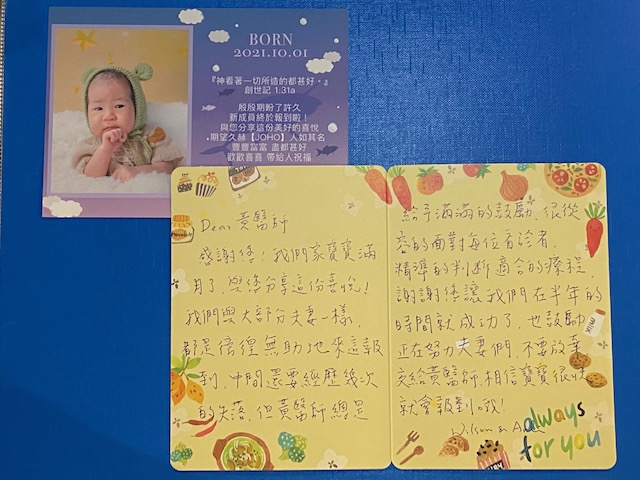 BORN
2021.10.01
『神看著一切所造的都甚好。』
創世記 1:31a
殷殷期盼了許久
新成員終於報到啦！
與您分享這份美好的喜悅
期望久赫【JOHO】人如其名
豐豐富富 盡都甚好
歡歡喜喜 帶給人祝福
Dear 黃醫師
感謝您！我們家寶寶滿
月了，與您分享這份喜悅！
我們與大部分夫妻一樣，
都是徬徨無助地來這報
到，中間還要經歷幾次
的失落，但黃醫師總是
給予滿滿的鼓勵，很從
容的面對每位看診者，
精準的判斷適合的療程，
謝謝您讓我們在半年的
時間就成功了，也鼓勵
正在努力夫妻們，不要放棄
交給黃醫師，相信寶寶很快
就會報到哦！
Wilson &
always
for you
MILK